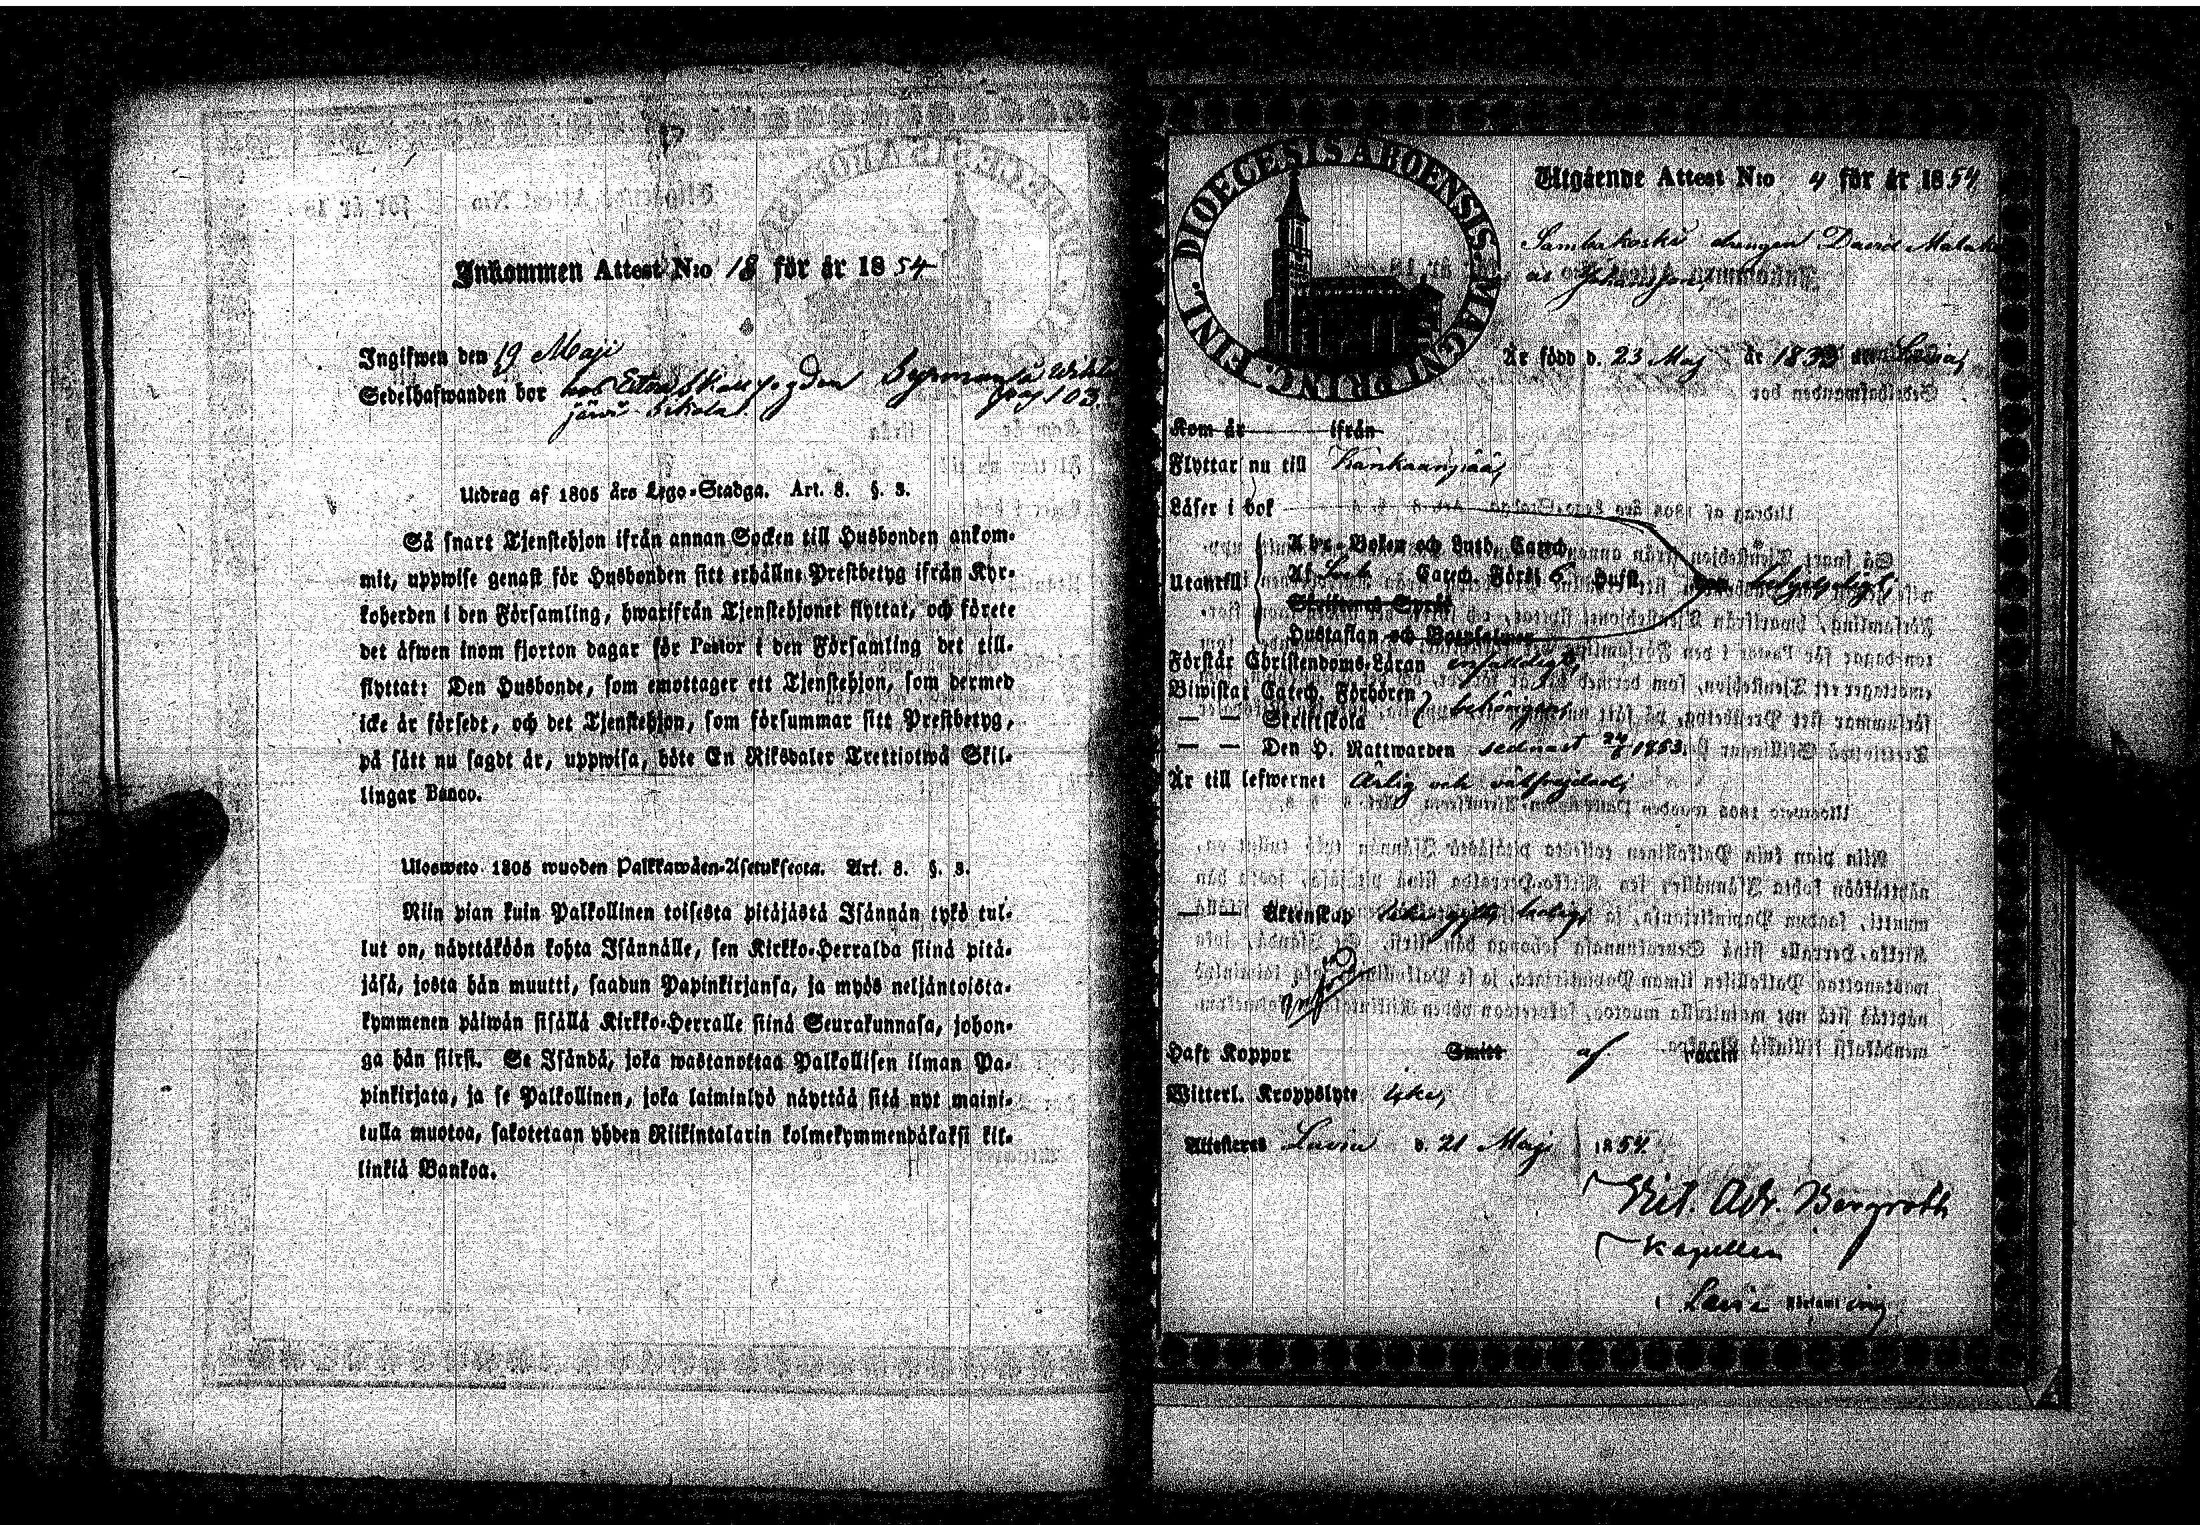 Inkommen Attest N:o 18 för år 1854
Ingifwen den 19 Maji
Sedelhafwanden bor hos
Utdrag af 1805 års Lego-Stadga. Art. 8. §. 3.
Så snart Tjenstehjon ifrån annan Socken till Husbonden ankom-
mit, uppwise genast för Husbonden sitt erhållne Prestbetyg ifrån Kyr-
koherden i den Församling, hwarifrån Tjenstehjonet flyttat, och förete
det äfwen inom fjorton dagar för Pastor i den Församling det till-
flyttat: Den Husbonde, som emottager ett Tjenstehjon, som dermed
icke är försedt, och det Tjenstehjon, som försummar sitt Prestbetyg,
på sätt nu sagdt är, uppwisa, böte En Riksdaler Trettiotwå Skil-
lingar Banco.
Ulosweto 1805 wuoden Palkkawäen-Asetuksesta. Art. 8. §. 3.
Niin pian kuin Palkollinen toisesta pitäjästä Isännän tykö tul-
lut on, näyttäköön kohta Isännälle, sen Kirkko-Herralda siinä pitä-
jäsä, josta hän muutti, saadun Papinkirjansa, ja myös neljäntoista-
kymmenen päiwän sisällä Kirkko-Herralle siinä Seurakunnasa, johon-
ga hän siirsi. Se Isändä, joka wastanottaa Palkollisen ilman Pa-
pinkirjata, ja se Palkollinen, joka laiminlyö näyttää sitä nyt maini-
tulla muotoa, sakotetaan yhden Riikintalarin kolmekymmendäkaksi kil-
linkiä Bankoa.
DIOECESIS ABOENSIS MAGNI PRINC. FINL.
Utgående Attest N:o 4 för år 1854
Sambakoski drengen David Malaki
as Johansson,
Är född d. 23 Maj år 1833 Lavia,
Kom år ifrån
Flyttar nu till Kankaanpää,
Läser i bok
Utantill
A b c-Boken och Luth. Catech.
Af Catech. Förkl 6. Hufst. behjelpligt,
Skriftenes Språk
Hustaflan och Botpsalmer
Förstår Christendoms-Läran enfaldigt,
Biwistat Catech. Förhören
— — Skriftskola behörigen,
— — Den H. Nattwarden sednast 1853.
Är till lefwernet Ärlig och välfrejdad,
— — Äktenskap ledig,
Haft Koppor Smitt af Vaccin
Witterl. Kroppslyte Icke,
Attesteras Lavia d. 21 Maji 1854.
Vict. Adr. Bergroth
Kapellan
i Lavia Församling